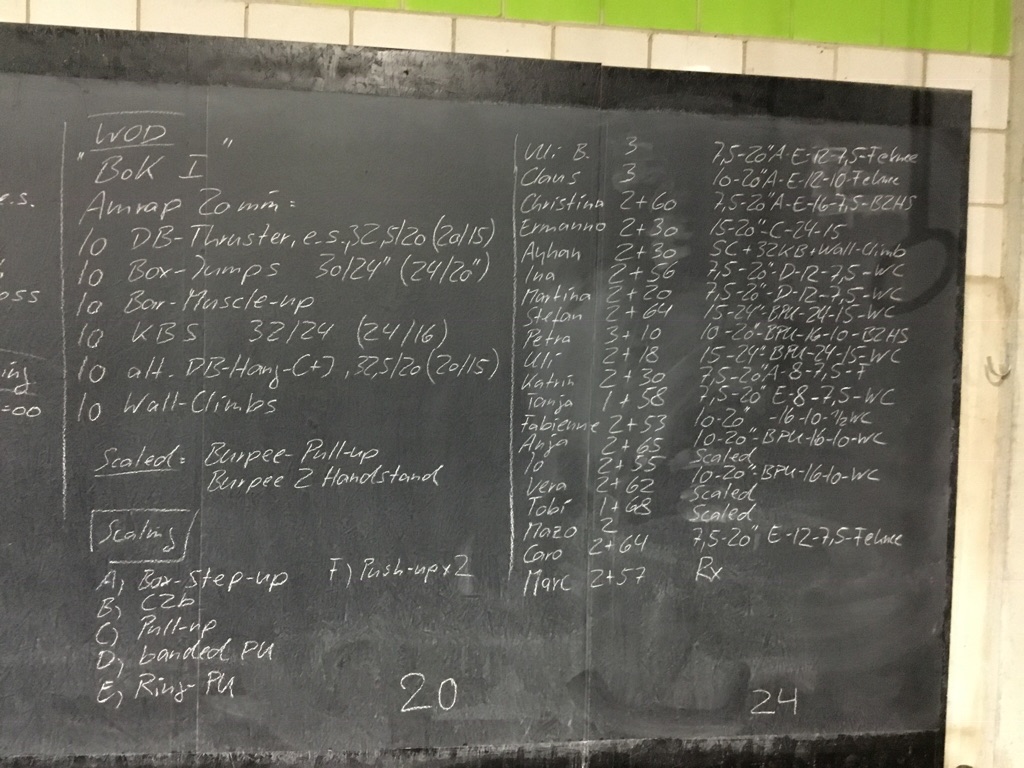 e.s.
oss
ing
=00
WOD
"BoK I"
Amrap 20min:
10 DB-Thruster, e.s., 32,5/20 (20/15)
10 Box-Jumps 30/24" (24/20")
10 Bar-Muscle-up
10 KBS 32/24 (24/16)
10 alt. DB-Hang-C+J, 32,5/20 (20/15)
10 Wall-Climbs
Scaled: Burpee-Pull-up
Burpee 2 Handstand
Scaling
A) Box-Step-up F) Push-up x2
B) C2b
C) Pull-up
D) banded PU
E) Ring-PU
20
Uli B. 3 7,5-20"A-E-12-7,5-
Claus 3 10-20"A-E-12-10-
Christina 2+60 7,5-20"A-E-16-7,5-B2HS
Ermanno 2+30 15-20"-C-24-15
Ayhan 2+30 SC+32KB+Wall-Climb
Ina 2+56 7,5-20"-D-12-7,5-WC
Martina 2+20 7,5-20"-D-12-7,5-WC
Stefan 2+64 15-24"-BPU-24-15-WC
Petra 3+10 10-20"-BPU-16-10-B2HS
Uli 2+18 15-24"-BPU-24-15-WC
Katrin 2+30 7,5-20"A-8-7,5-F
Tanja 1+58 7,5-20" E-8-7,5-WC
Fabienne 2+53 10-20" -16-10-½WC
Anja 2+65 10-20"-BPU-16-10-WC
Jo 2+55 Scaled
Vera 2+62 10-20"-BPU-16-10-WC
Tobi 1+68 Scaled
Mazo 2 Scaled
Caro 2+64 7,5-20" E-12-7,5-
Marc 2+57 Rx
24